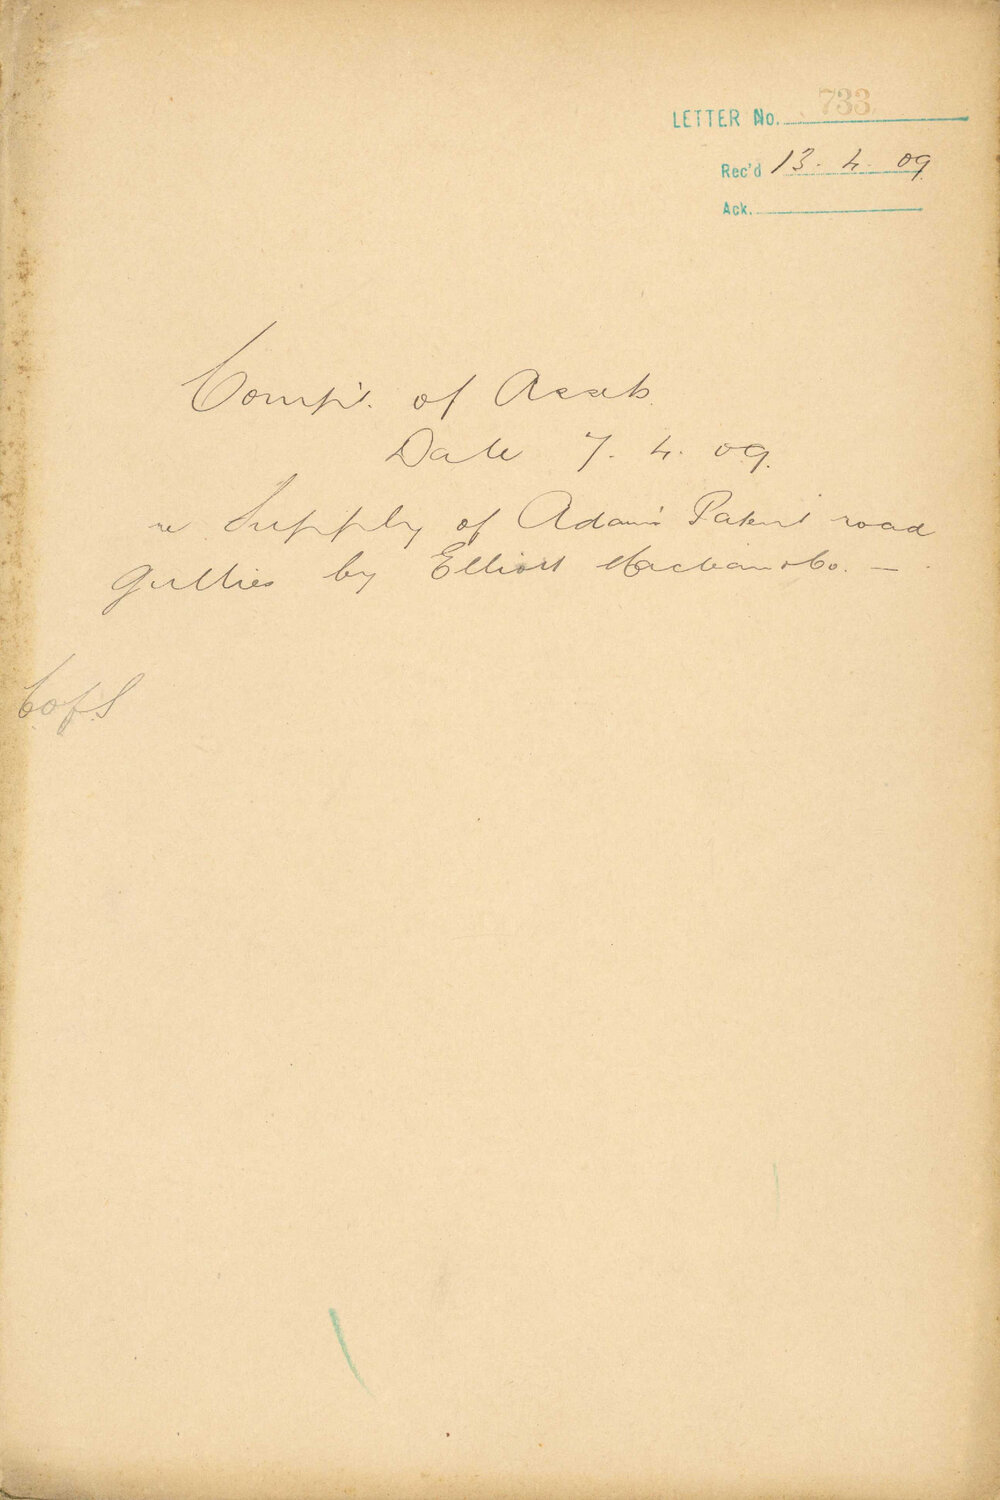 LETTER No. 733
Rec'd 13. 4. 09
Ack.
Compt. of Assets
Date 7. 4. 09.
re Supply of Adam's Patent road
Gullies by Elliott Maclean & Co. —
C. of S